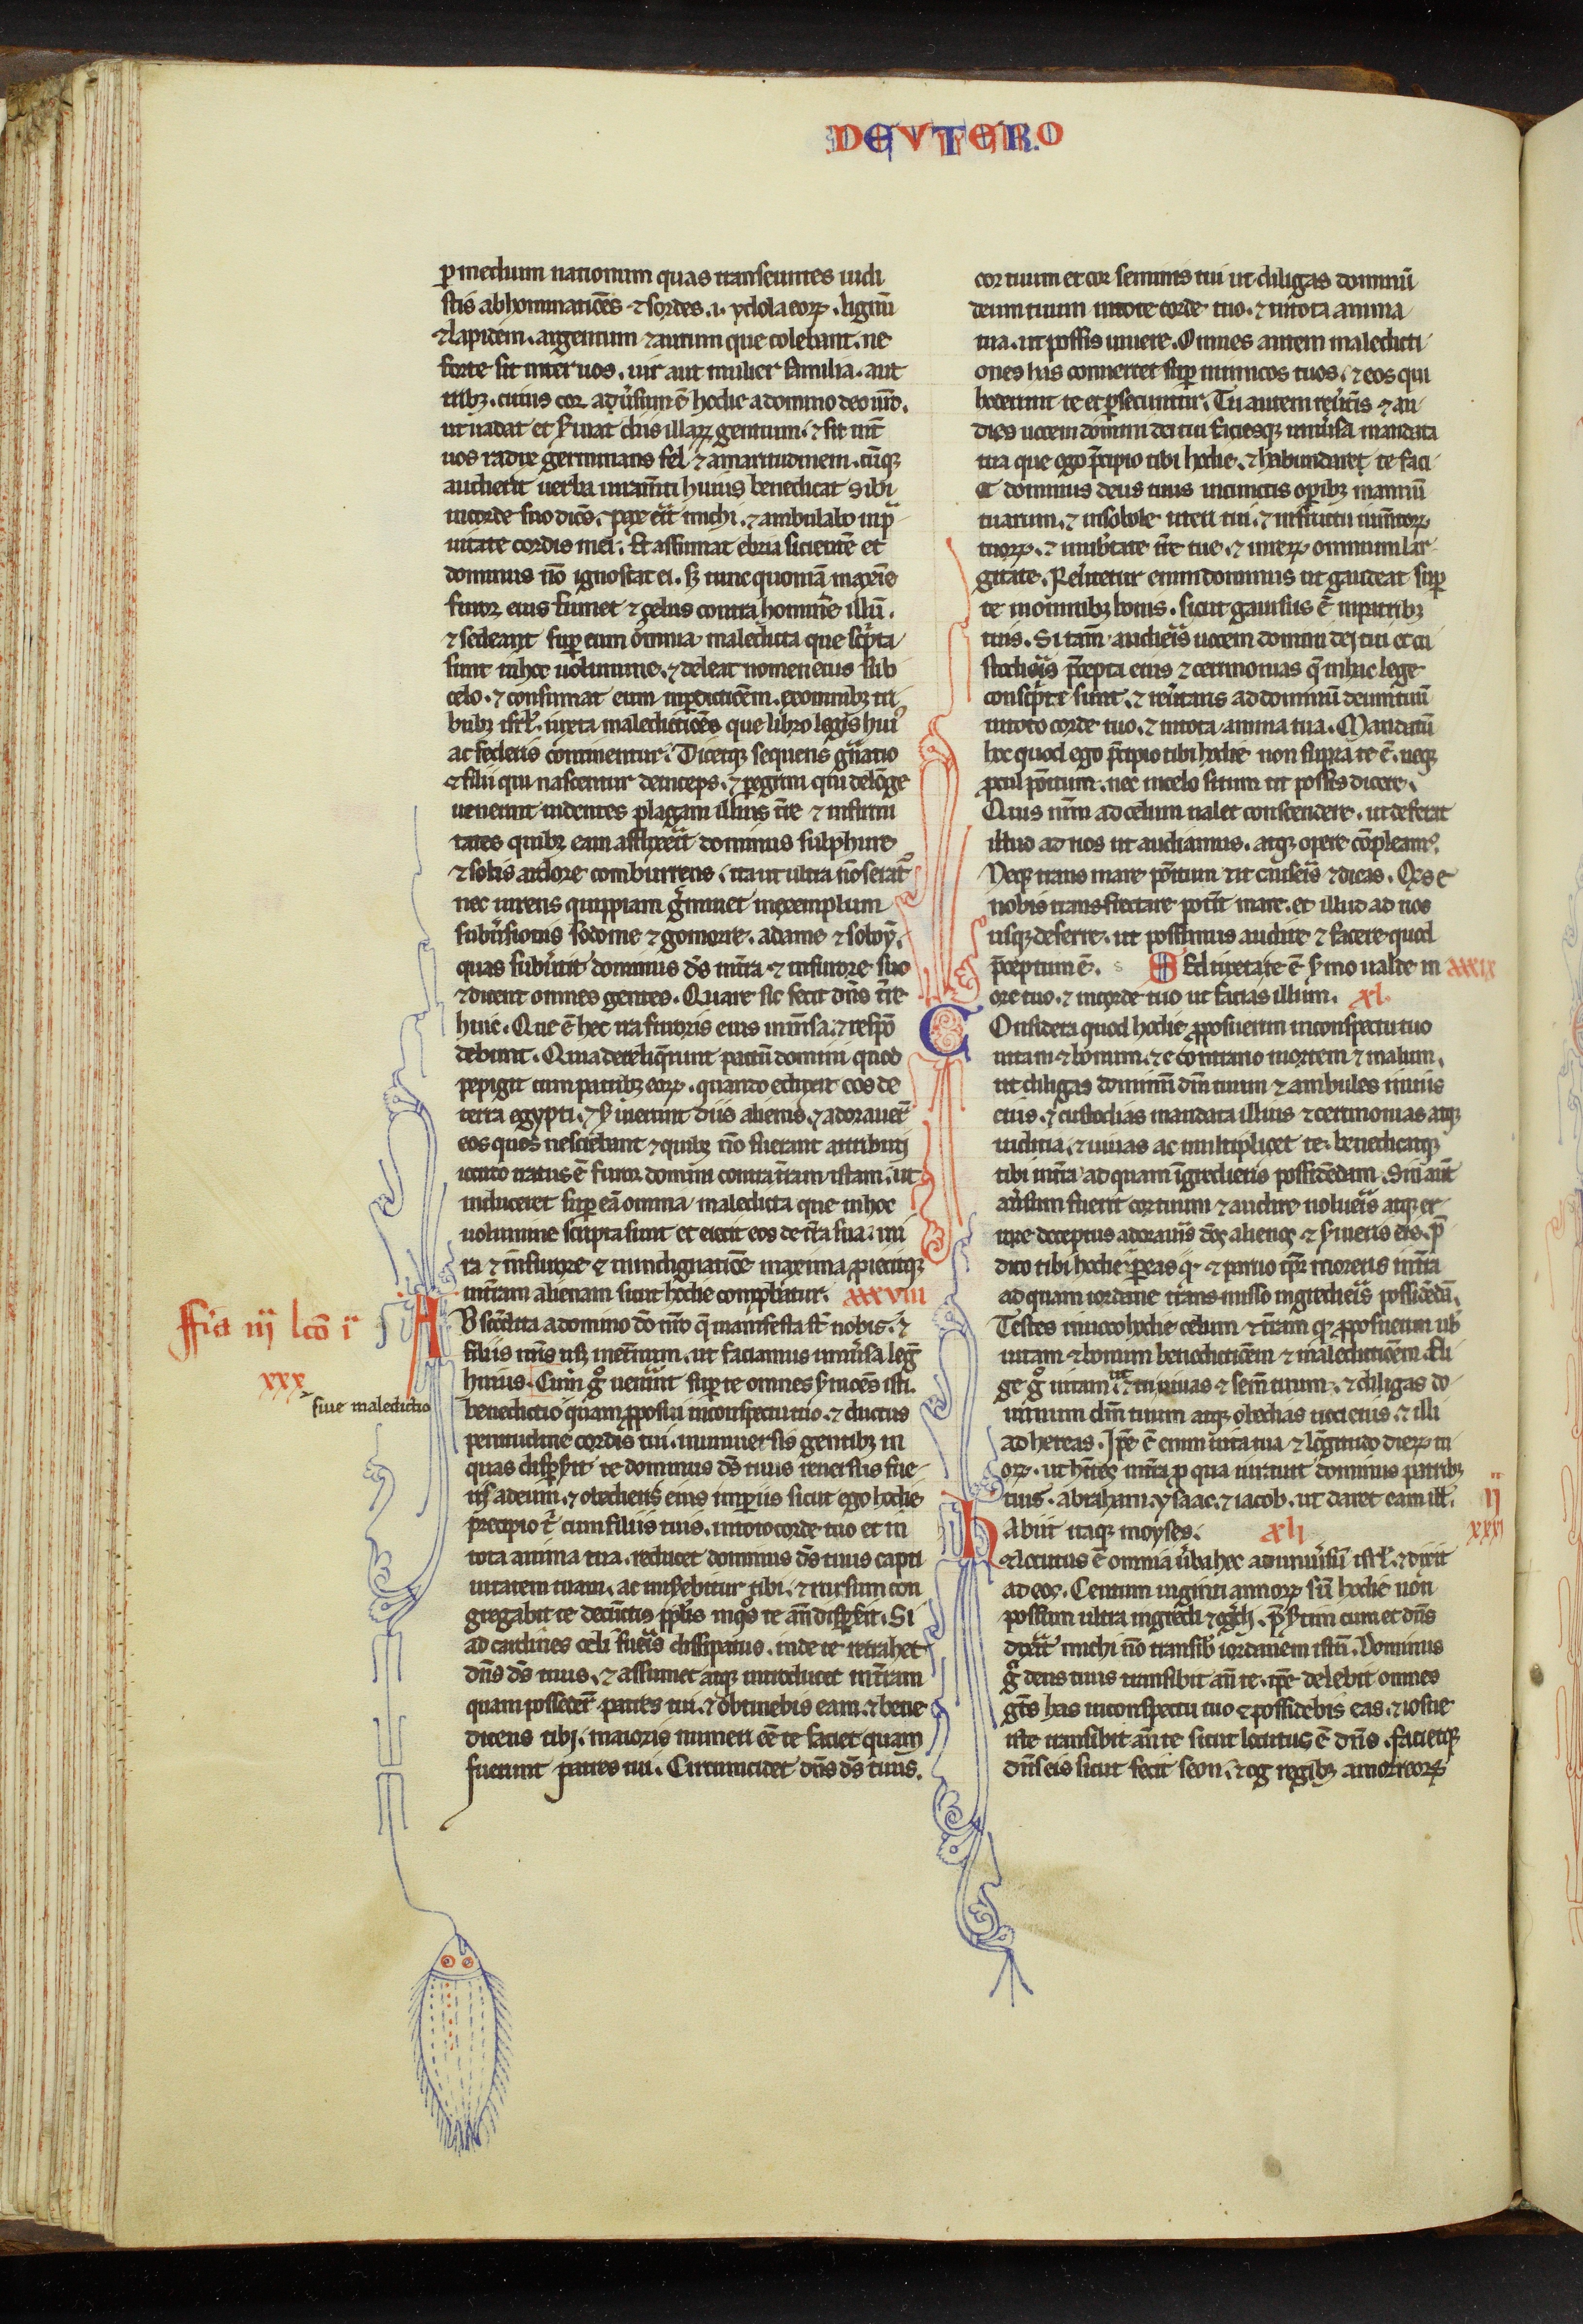 DEUTERO
p medium nationum quas transeuntes uidi
stis abhominatiões ⁊ sordes .i. ydola eoꝝ . lignũ
⁊ lapidem . argentum ⁊ aurum que colebant . ne
forte sit inter uos . uir aut mulier familia . aut
tribꝫ . cuius cor aduersum ẽ hodie a domino deo nr̃o .
ut uadat et seruiat diis illaꝝ gentium . ⁊ sit int̃
uos radix germinans fel ⁊ amaritudinem . cũqꝫ
audierit uerba iuram̃ti huius benedicat sibi
in corde suo dicẽs . pax erit michi . ⁊ ambulabo in pra
uitate cordis mei . Et assumat ebria sicientẽ et
dominus nõ ignoscat ei . sꝫ tunc quoniã maxĩe
furor eius fumet ⁊ zelus contra hominẽ illũ .
⁊ sedeant super eum omnia maledicta que scripta
sunt in hoc uolumine . ⁊ deleat nomen eius sub
celo . ⁊ consumat eum in perditiõem . ex omnibꝫ tri
bubꝫ isrl̃ . iuxta maledictiões que libro legis hui9
ac federis continentur . Dicetqꝫ sequens gñatio
⁊ filii qui nascentur deinceps . ⁊ peregrini qui de lõge
uenerint uidentes plagam illius tr̃e ⁊ infirmi
tates quibꝫ eam afflixerit dominus sulphure
⁊ solis ardore comburrens . ita ut ultra nõ serat
nec uirens quippiam germinet in exemplum
subuersionis sodome ⁊ gomorre . adame ⁊ seboy .
quas subuertit dominus ds̃ in ira ⁊ in furore suo
⁊ dicent omnes gentes . Quare sic fecit dñs tr̃e
huic . Que ẽ hec ira furoris eius inmensa . ⁊ respõ
debunt . Quia dereliquerunt pactũ domini quod
pepigit cum patribꝫ eoꝝ . quando eduxit eos de
terra egypti . ⁊ seruierunt diis alienis . ⁊ adorauer̃t
eos quos nesciebant ⁊ quibꝫ nõ fuerant attributi
iccirco iratus ẽ furor domini contra tr̃am istam . ut
induceret super eã omnia maledicta que in hoc
uolumine scripta sunt et eiecit eos de tr̃a sua . in i
ra ⁊ in furore ⁊ in indignatiõe maxima proiecitqꝫ
in tr̃am alienam sicut hodie comprobatur . xxxviii
Abscõdita a domino dõ nr̃o que manifesta st̃ nobis . ⁊
filiis nr̃is usqꝫ in eternum . ut faciamus uniuersa leg̃
huius . Cum g̊ uenerint super te omnes sermões isti .
benedictio quam proposui in conspectu tuo . ⁊ ductus
penitudine cordis tui . in uniuersis gentibꝫ in
quas disperserit te dominus ds̃ tuus reuersus fue
ris ad eum . ⁊ obediens eius imperiis sicut ego hodie
precipio t̃ cum filiis tuis . in toto corde tuo et in
tota anima tua . reducet dominus ds̃ tuus capti
uitatem tuam . ac miserebitur tibi . ⁊ rursum con
gregabit te de cunctis populis in quos te añ dispersit . Si
ad cardines celi fueris dissipatus . inde te retrahet
dñs ds̃ tuus . ⁊ assumet atqꝫ introducet in tr̃am
quam possedert̃ patres tui . ⁊ obtinebis eam . ⁊ bene
dicens tibi . maioris numeri eẽ te faciet quam
fuerunt patres tui . Circumcidet dñs ds̃ tuus .
ffria iij lcõ i
xxx
siue maledictio
cor tuum et cor seminis tui ut diligas dominũ
deum tuum in toto corde tuo . ⁊ in tota anima
tua . ut possis uiuere . Omnes autem maledicti
ones has conuertet super inimicos tuos . ⁊ eos qui
hoderunt te et persecuntur . Tu autem reuertis ⁊ au
dies uocem domini dei tui faciesqꝫ uniuersa mandata
ita que ego precipio tibi hodie . ⁊ habundare te faci
et dominus deus tuus in cunctis operibꝫ manuũ
tuarum . ⁊ in sobole uteri tui . ⁊ in fructu iumentoꝝ
tuoꝝ . ⁊ in ubertate tr̃e tue . ⁊ in reꝝ omnium lar
gitate . Reuertetur enim dominus ut gaudeat super
te in omnibꝫ bonis . sicut gauisus ẽ in patribꝫ
tuis . Si tam̃ audieris uocem domini dei tui et cu
stodieris precepta eius ⁊ cerimonias que in hac lege
conscripte sunt . ⁊ reuertaris ad dominũ deum tuũ
in toto corde tuo . ⁊ in tota anima tua . Mandatũ
hoc quod ego precipio tibi hodie non supra te ẽ . neqꝫ
procul positum . nec in celo situm ut possis dicere .
Quis nr̃m ad celum ualet conscendere . ut deferat
illud ad nos ut audiamus . atqꝫ opere cõpleam9 .
Neqꝫ trans mare positum ut causeris ⁊ dicas . Qis e
nobis transfretare poterit mare . et illud ad nos
usqꝫ deferre . ut possimus audire ⁊ facere quod
preceptum ẽ . Sed iuxta te ẽ sermo ualde in xxxix
ore tuo . ⁊ in corde tuo ut facias illum . xl
Considera quod hodie proposuerim in conspectu tuo
uitam ⁊ bonum . ⁊ e contrario mortem ⁊ malum .
ut diligas dominũ dm̃ tuum ⁊ ambules in uiis
eius . ⁊ custodias mandata illius ⁊ cerimonias atqꝫ
iudicia . ⁊ uiuas ac multiplicet te . benedicatqꝫ
tibi in tr̃a ad quam ĩgredieris possidẽdam . Sin aut̃
auersum fuerit cor tuum ⁊ audire nolueris atqꝫ er
rore deceptus adoraueris deos alienos ⁊ seruieris eis . pre
dico tibi hodie quod pereas ⁊ paruo tpr̃ moreris in tr̃a
ad quam iordane transmisso ingredieris possidẽdã .
Testes inuoco hodie celum ⁊ tr̃am quod proposuerim uob
uitam ⁊ bonum benedictiõem ⁊ maledictiõem . Eli
ge g̊ uitam ut ⁊ tu uiuas ⁊ sem̃ tuum . ⁊ diligas do
minum dm̃ tuum atqꝫ obedias uoci eius . ⁊ illi
adhereas . Ipe ẽ enim uita tua ⁊ lõgitudo dieꝝ tu
oꝝ . ut hites in tr̃a pro qua iurauit dominus patribꝫ
tuis . abraham . ysaac . ⁊ iacob . ut daret eam ill̃ .
Habiit itaqꝫ moyses . xli
⁊ locutus ẽ omnia uerba hec ad uniuersũ isrl̃ . ⁊ dixit
ad eos . Centum uiginti annoꝝ sũ hodie non
possum ultra ingredi ⁊ egredi . presertim cum et dñs
dixerit michi nõ transibis iordanem istũ . Dominus
g̊ deus tuus transibit añ te . ipe delebit omnes
gẽtes has in conspectu tuo ⁊ possidebis eas . ⁊ iosue
iste transibit añ te sicut locutus ẽ dñs . facietqꝫ
dñs eis sicut fecit seon . ⁊ og regibꝫ amorreoꝝ
ii
xxxi